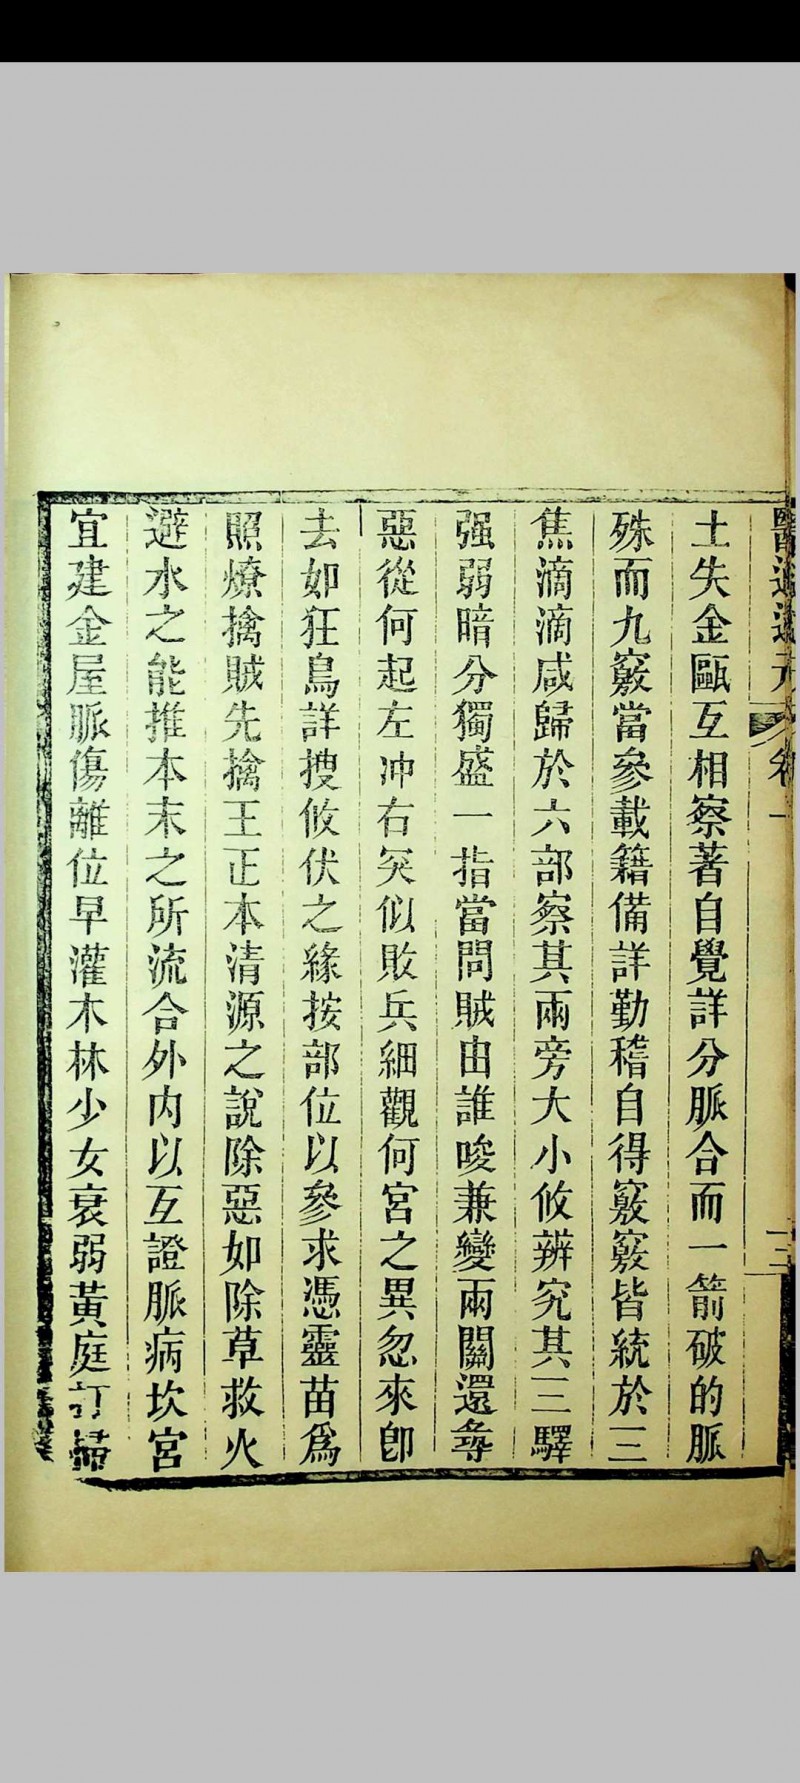 醫道還元 卷一
土失金甌互相察著自覺詳分脈合而一箭破的脈
殊而九竅當參載籍備詳勤稽自得竅竅皆統於三
焦滴滴咸歸於六部察其兩旁大小攸辨究其三驛
强弱暗分獨盛一指當問賊由誰唆兼變兩關還尋
惡從何起左冲右突似敗兵細觀何宮之異忽來卽
去如狂鳥詳搜攸伏之緣按部位以參求憑靈苗爲
照燎擒賊先擒王正本清源之說除惡如除草救火
避水之能推本末之所流合外內以互證脈病坎宮
宜建金屋脈傷離位早灌木林少女衰弱黃庭訂